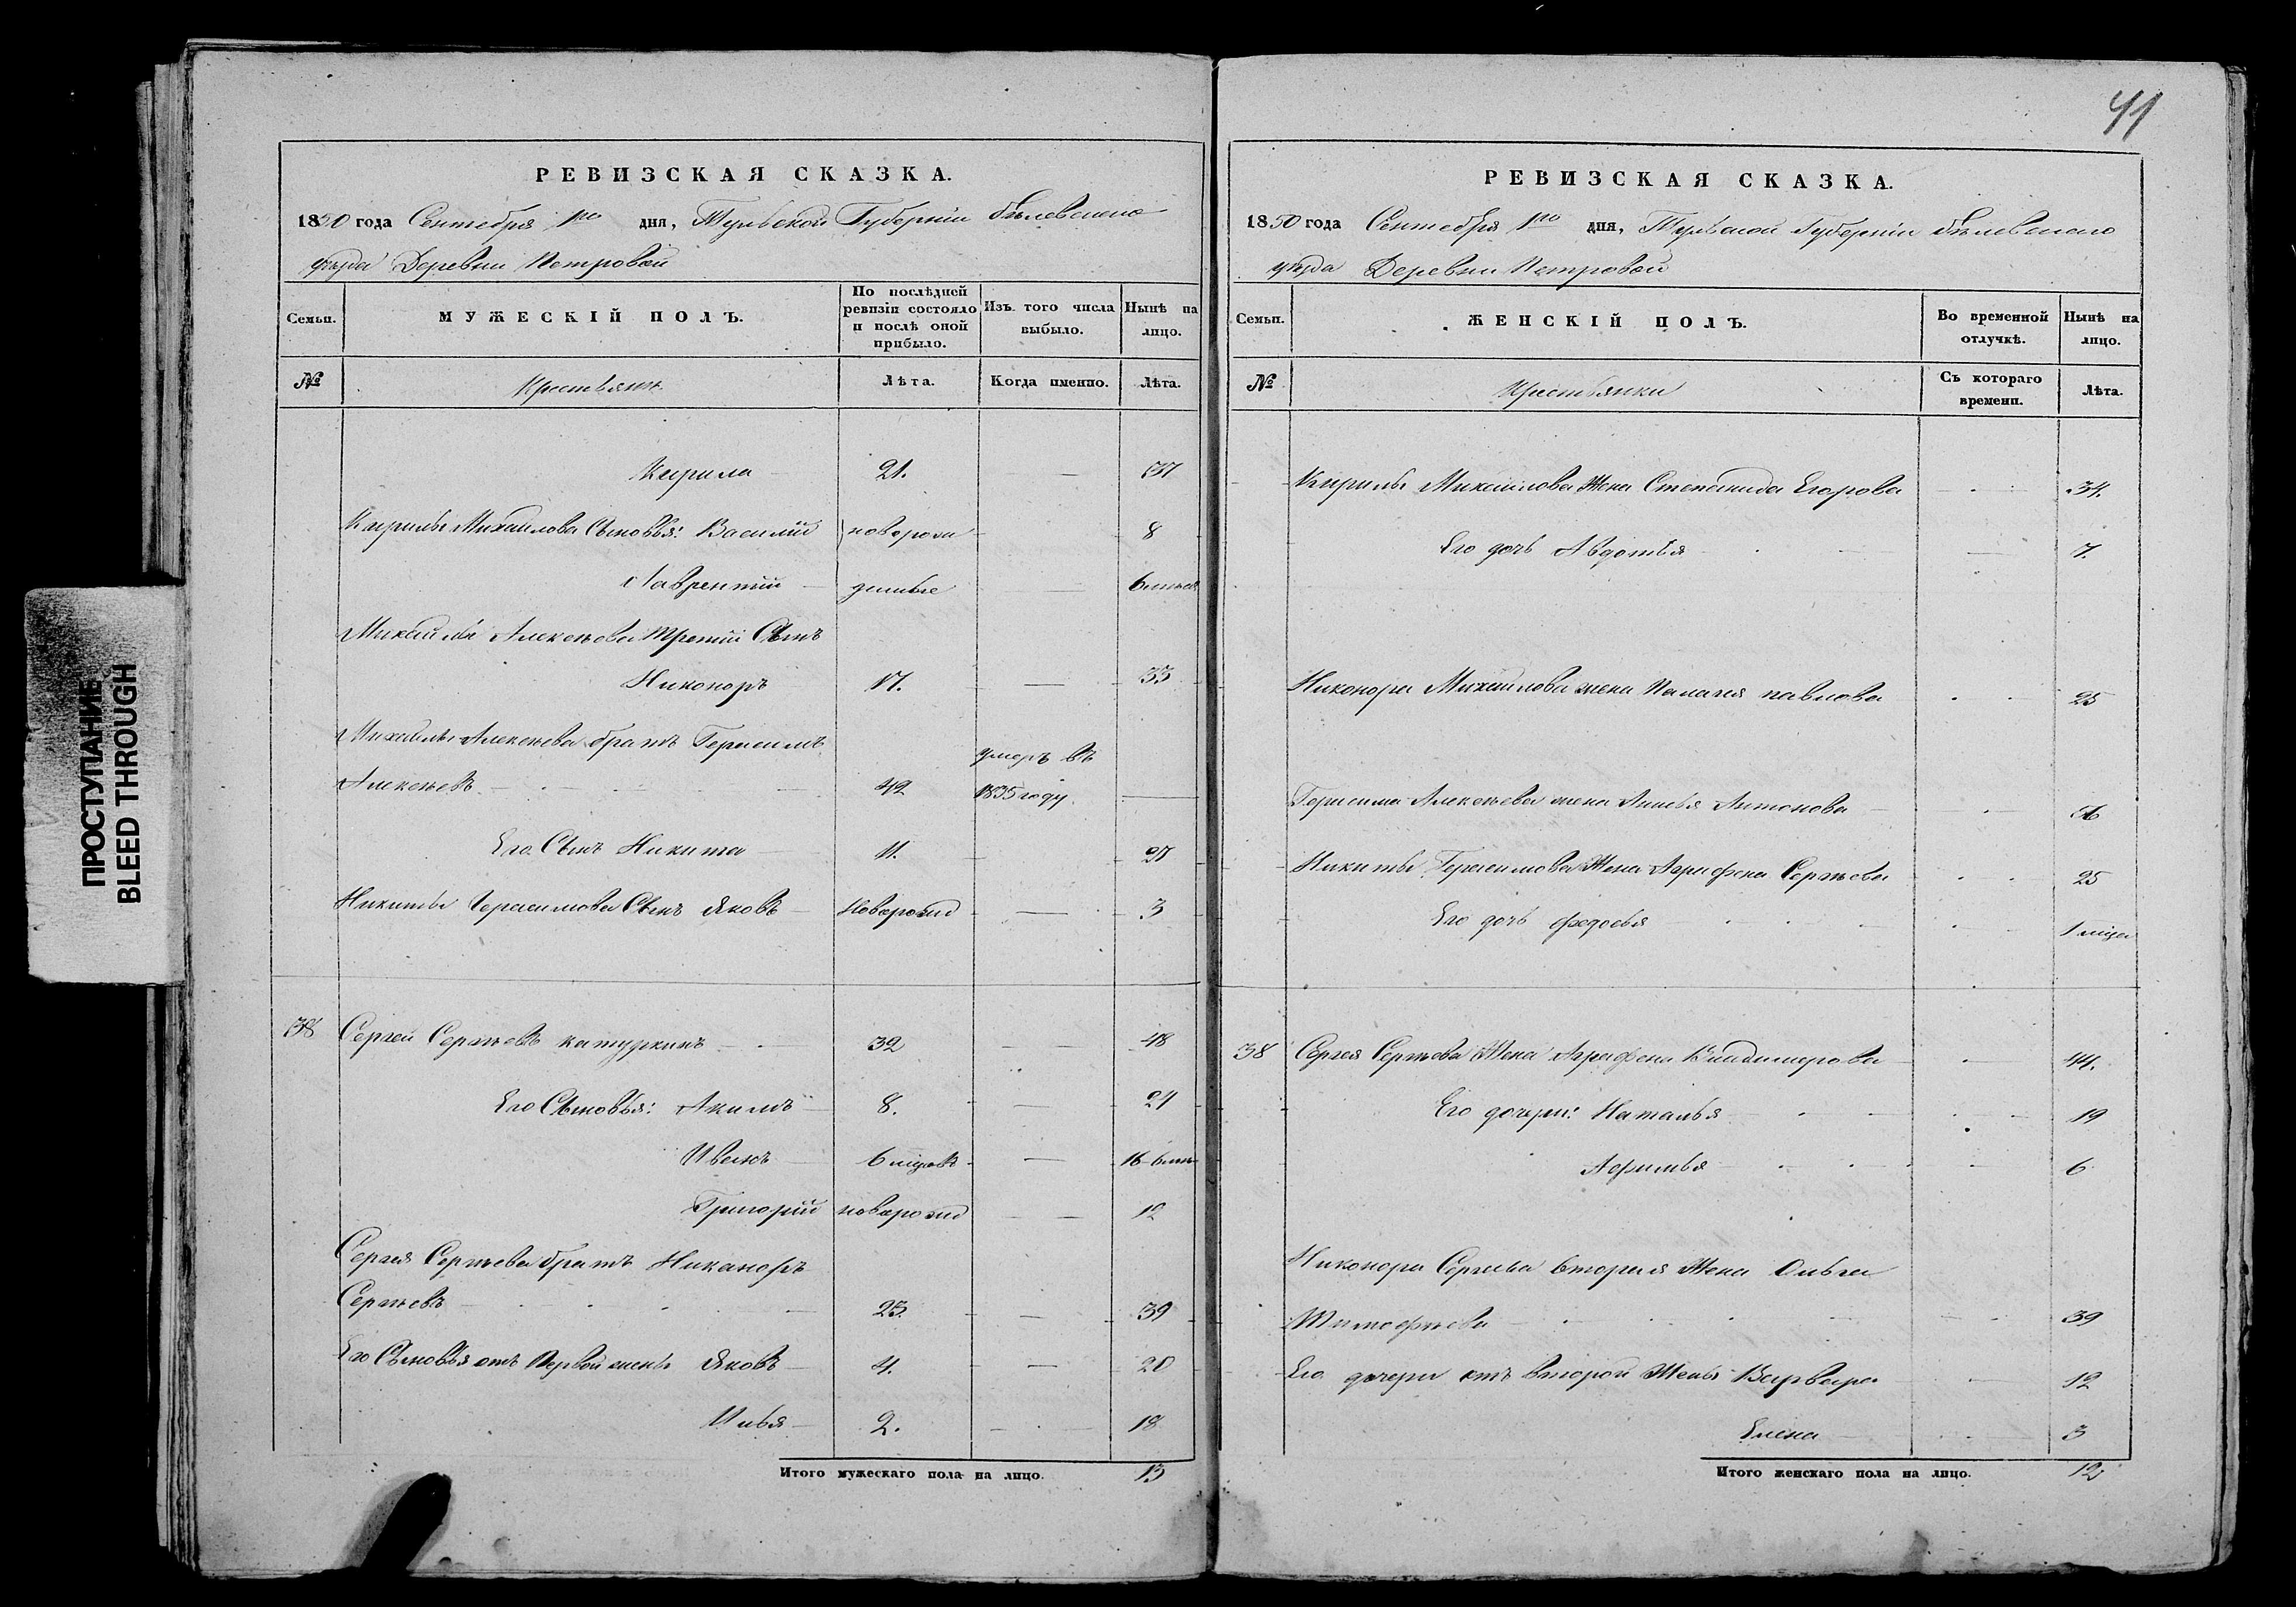 ПРОСТУПАНИЕ
BLEED THROUGH
РЕВИЗСКАЯ СКАЗКА.
1850 года Сентебря 1го дня, Тульской Губерніи бѣлевского
уѣзда Деревни Петровой
Семьи. МУЖЕСКІЙ ПОЛЪ. По послѣдней ревизіи состояло и послѣ оной прибыло. Изъ того числа выбыло. Нынѣ на лицо.
№ Крестьяня Лѣта. Когда именно. Лѣта.
Кирила 21. — 37
Кирилы Михаилова Сыновья: Василій новорож 8
Лаврентій денные — 6
Михайлы Алексѣева третій Сынъ
Никоноръ 17. — 33
Михаилы Алексѣева братъ Герасимъ умеръ въ
Алексѣевъ 42 1835 году. —
Его Сынъ Никита 11. — 27
Никиты Герасимова Сынъ Яковъ новорожд — 3
38 Сергей Сергѣевъ катуркинъ 32 — 48
Его Сыновья: Акимъ 8. — 24
Иванъ 6 — 16
Григорій новорожд — 12
Сергея Сергѣева братъ Никаноръ
Сергѣевъ 23. — 39
Его Сыновья отъ Первой жены Яковъ 4. — 20
Илья 2. — 18
Итого мужескаго пола на лицо. 13
41
РЕВИЗСКАЯ СКАЗКА.
1850 года Сентебря 1го дня, Тульской Губерніи бѣлевского
уѣзда Деревни Петровой
Семьи. ЖЕНСКІЙ ПОЛЪ. Во временной отлучкѣ. Нынѣ на лицо.
№ Крестьянки Съ котораго времени. Лѣта.
Кирилы Михаилова Жена Степанида Егорова 34.
Его дочь Авдотья — 7.
Никонора Михайлова жена Палагея павлова 25
Герасима Алексѣева жена Антонова
Никиты Герасимова Жена Аграфена Сергѣева 25
Его дочь федосья 1
38 Сергея Сергѣева Жена Аграфена Владимерова 44.
Его дочери: Наталья 19
Афимья 6
Никонора Сергѣева вторая Жена Ольга
Тимофѣева 39
Его дочери отъ второй Жены Варвара 12
Елена 3
Итого женскаго пола на лицо. 12